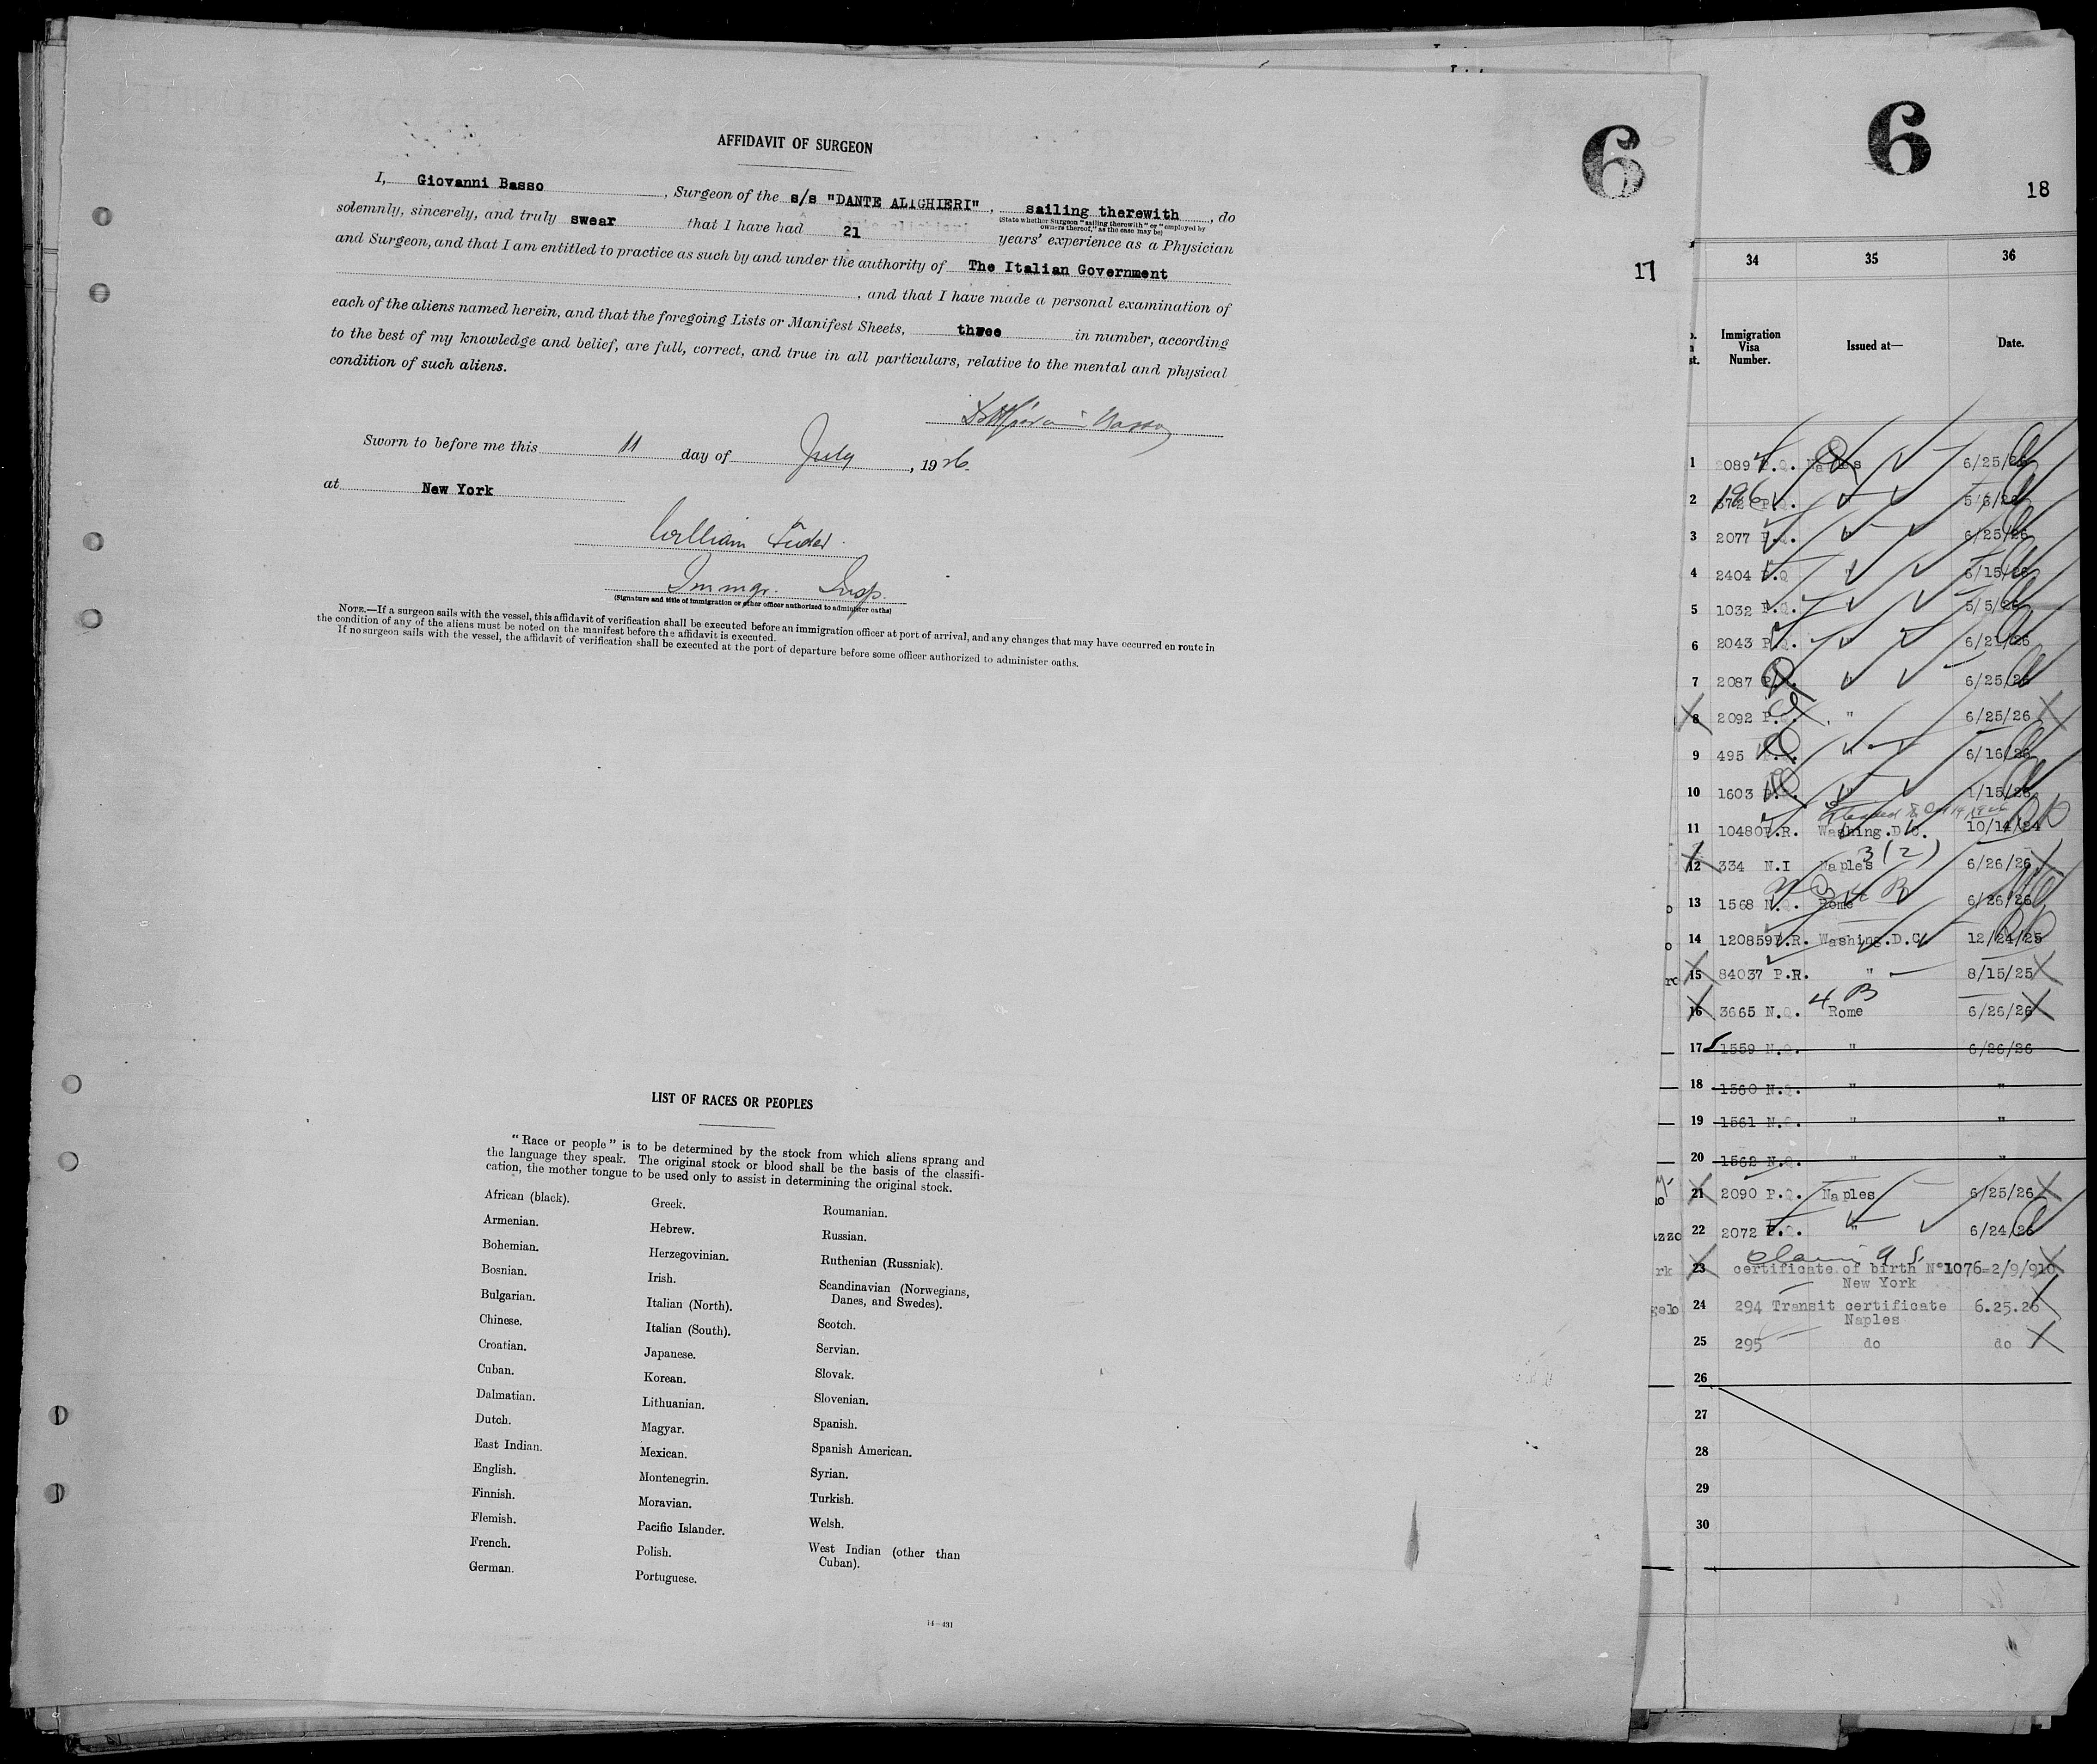 6
AFFIDAVIT OF SURGEON
I, Giovanni Basso, Surgeon of the s/s "DANTE ALIGHIERI", sailing therewith, do
(State whether Surgeon "sailing therewith" or "employed by
owners thereof," as the case may be)
solemnly, sincerely, and truly swear that I have had 21 years' experience as a Physician
and Surgeon, and that I am entitled to practice as such by and under the authority of The Italian Government
, and that I have made a personal examination of
each of the aliens named herein, and that the foregoing Lists or Manifest Sheets, three in number, according
to the best of my knowledge and belief, are full, correct, and true in all particulars, relative to the mental and physical
condition of such aliens.
Sworn to before me this 11 day of July, 1926.
at New York
William
Immgr. Insp.
(Signature and title of immigration or other officer authorized to administer oaths)
NOTE.—If a surgeon sails with the vessel, this affidavit of verification shall be executed before an immigration officer at port of arrival, and any changes that may have occurred en route in
the condition of any of the aliens must be noted on the manifest before the affidavit is executed.
If no surgeon sails with the vessel, the affidavit of verification shall be executed at the port of departure before some officer authorized to administer oaths.
17
LIST OF RACES OR PEOPLES
"Race or people" is to be determined by the stock from which aliens sprang and
the language they speak. The original stock or blood shall be the basis of the classifi-
cation, the mother tongue to be used only to assist in determining the original stock.
African (black).
Armenian.
Bohemian.
Bosnian.
Bulgarian.
Chinese.
Croatian.
Cuban.
Dalmatian.
Dutch.
East Indian.
English.
Finnish.
Flemish.
French.
German.
Greek.
Hebrew.
Herzegovinian.
Irish.
Italian (North).
Italian (South).
Japanese.
Korean.
Lithuanian.
Magyar.
Mexican.
Montenegrin.
Moravian.
Pacific Islander.
Polish.
Portuguese.
Roumanian.
Russian.
Ruthenian (Russniak).
Scandinavian (Norwegians,
Danes, and Swedes).
Scotch.
Servian.
Slovak.
Slovenian.
Spanish.
Spanish American.
Syrian.
Turkish.
Welsh.
West Indian (other than
Cuban).
14—431
6
18
34 35 36
Immigration
Visa
Number.
Issued at—
Date.
1 2089 P.Q. Naples 6/25/26
2 672 P.Q. " 5/6/26
3 2077 P.Q. " 6/25/26
4 2404 P.Q " 6/15/26
5 1032 P.Q. " 5/5/26
6 2043 P.Q. " 6/21/26
7 2087 P.Q. " 6/25/26
8 2092 P.Q. " 6/25/26
9 495 P.Q. " 6/16/26
10 1603 P.Q. " 1/15/26
11 10480P.R. Washing.D.C. 10/14/24
3(2)
12 334 N.I Naples 6/26/26
13 1568 N.Q. Rome 6/26/26
14 120859P.R. Washing.D.C. 12/24/25
15 84037 P.R. " 8/15/25
4 B
16 3665 N.Q. Rome 6/26/26
17 1559 N.Q. " 6/26/26
18 1560 N.Q. " "
19 1561 N.Q. " "
20 1562 N.Q. " "
21 2090 P.Q. Naples 6/25/26
22 2072 P.Q. " 6/24/26
23 certificate of birth N°1076=2/9/910
New York
24 294 Transit certificate 6.25.26
Naples
25 295 do do
26
27
28
29
30